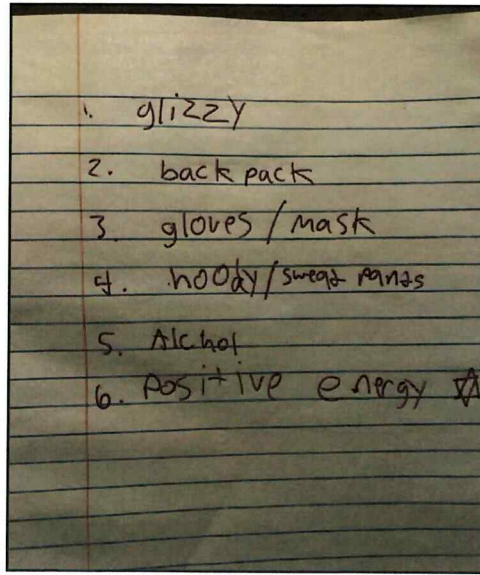 1. glizzy
2. back pack
3. gloves / mask
4. hoody/sweat pants
5. Alchol
6. Positive energy